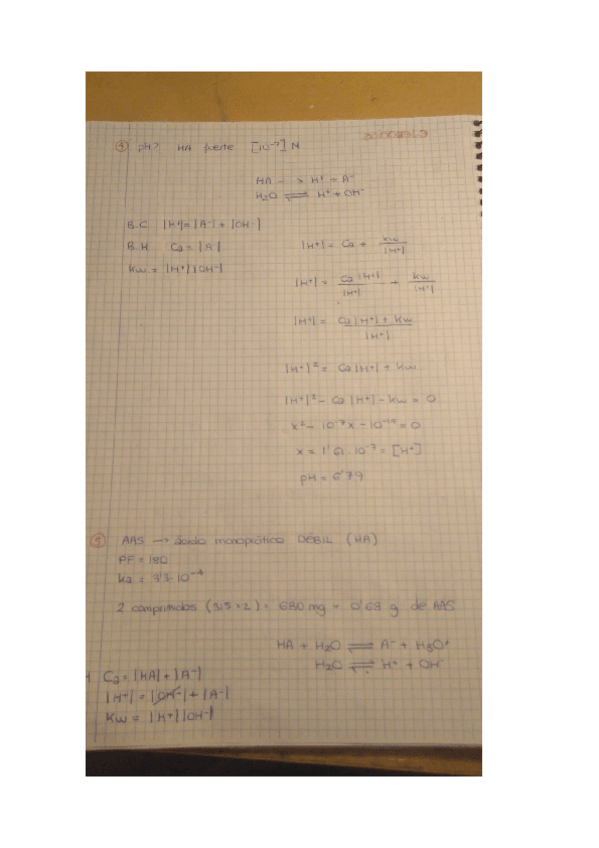 ④ pH? HA fuerte [10⁻⁷] M
HA → H⁺ + A⁻
H₂O ⇌ H⁺ + OH⁻
B.C |H⁺| = |A⁻| + |OH⁻|
Ca = |A⁻|
Kw = |H⁺||OH⁻|
|H⁺| = Ca + Kw/|H⁺|
|H⁺| = Ca|H⁺|/|H⁺| + Kw/|H⁺|
|H⁺| = Ca|H⁺| + Kw/|H⁺|
|H⁺|² = Ca|H⁺| + Kw
|H⁺|² - Ca|H⁺| - Kw = 0
x² - 10⁻⁷x - 10⁻¹⁴ = 0
x = 1'61·10⁻⁷ = [H⁺]
pH = 6'79
⑤ AAS → ácido monoprótico DÉBIL (HA)
PF = 180
Ka =
2 comprimidos = 680 mg = 0'68 g de AAS
HA + H₂O ⇌ A⁻ + H₃O⁺
H₂O ⇌ H⁺ + OH⁻
Ca = |HA| + |A⁻|
|H⁺| = |OH⁻| + |A⁻|
Kw = |H⁺||OH⁻|